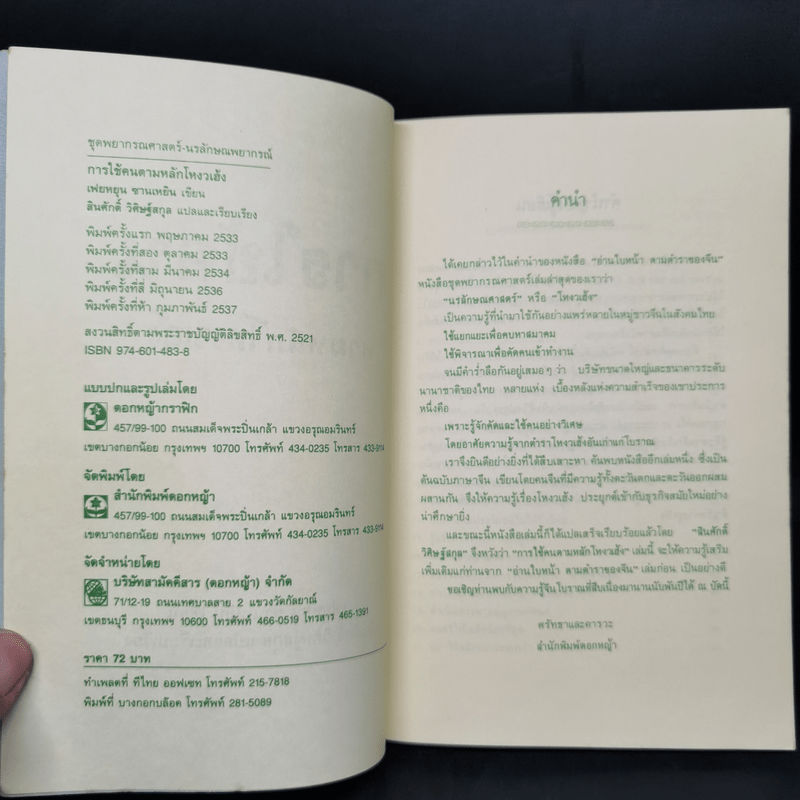 ชุดพยากรณศาสตร์-นรลักษณพยากรณ์
การใช้คนตามหลักโหงวเฮ้ง
เฟยหยุน ซานเหยิน เขียน
สินศักดิ์ วิศิษฐ์สกุล แปลและเรียบเรียง
พิมพ์ครั้งแรก พฤษภาคม 2533
พิมพ์ครั้งที่สอง ตุลาคม 2533
พิมพ์ครั้งที่สาม มีนาคม 2534
พิมพ์ครั้งที่สี่ มิถุนายน 2536
พิมพ์ครั้งที่ห้า กุมภาพันธ์ 2537
สงวนสิทธิ์ตามพระราชบัญญัติลิขสิทธิ์ พ.ศ. 2521
ISBN 974-601-483-8
แบบปกและรูปเล่มโดย
ดอกหญ้ากราฟิก
457/99-100 ถนนสมเด็จพระปิ่นเกล้า แขวงอรุณอมรินทร์
เขตบางกอกน้อย กรุงเทพฯ 10700 โทรศัพท์ 434-0235 โทรสาร 433-9114
จัดพิมพ์โดย
สำนักพิมพ์ดอกหญ้า
457/99-100 ถนนสมเด็จพระปิ่นเกล้า แขวงอรุณอมรินทร์
เขตบางกอกน้อย กรุงเทพฯ 10700 โทรศัพท์ 434-0235 โทรสาร 433-9114
จัดจำหน่ายโดย
บริษัทสามัคคีสาร (ดอกหญ้า) จำกัด
71/12-19 ถนนเทศบาลสาย 2 แขวงวัดกัลยาณ์
เขตธนบุรี กรุงเทพฯ 10600 โทรศัพท์ 466-0519 โทรสาร 465-1391
ราคา 72 บาท
ทำเพลตที่ ทีไทย ออฟเซท โทรศัพท์ 215-7818
พิมพ์ที่ บางกอกบล๊อค โทรศัพท์ 281-5089
คำนำ
ได้เคยกล่าวไว้ในคำนำของหนังสือ "อ่านใบหน้า ตามตำราของจีน"
หนังสือชุดพยากรณศาสตร์เล่มล่าสุดของเราว่า
"นรลักษณศาสตร์" หรือ "โหงวเฮ้ง"
เป็นความรู้ที่นำมาใช้กันอย่างแพร่หลายในหมู่ชาวจีนในสังคมไทย
ใช้แยกแยะเพื่อคบหาสมาคม
ใช้พิจารณาเพื่อคัดคนเข้าทำงาน
จนมีคำร่ำลือกันอยู่เสมอๆ ว่า บริษัทขนาดใหญ่และธนาคารระดับ
นานาชาติของไทย หลายแห่ง เบื้องหลังแห่งความสำเร็จของเขาประการ
หนึ่งคือ
เพราะรู้จักคัดและใช้คนอย่างวิเศษ
โดยอาศัยความรู้จากตำราโหงวเฮ้งอันเก่าแก่โบราณ
เราจึงยินดีอย่างยิ่งที่ได้สืบเสาะหา ค้นพบหนังสืออีกเล่มหนึ่ง ซึ่งเป็น
ต้นฉบับภาษาจีน เขียนโดยคนจีนที่มีความรู้ทั้งตะวันตกและตะวันออกผสม
ผสานกัน จึงให้ความรู้เรื่องโหงวเฮ้ง ประยุกต์เข้ากับธุรกิจสมัยใหม่อย่าง
น่าศึกษายิ่ง
และขณะนี้หนังสือเล่มนี้ก็ได้แปลเสร็จเรียบร้อยแล้วโดย "สินศักดิ์
วิศิษฐ์สกุล" จึงหวังว่า "การใช้คนตามหลักโหงวเฮ้ง" เล่มนี้ จะให้ความรู้เสริม
เพิ่มเติมแก่ท่านจาก "อ่านใบหน้า ตามตำราของจีน" เล่มก่อน เป็นอย่างดี
ขอเชิญท่านพบกับความรู้จีนโบราณที่สืบเนื่องมานานนับพันปีได้ ณ บัดนี้
ศรัทธาและคารวะ
สำนักพิมพ์ดอกหญ้า